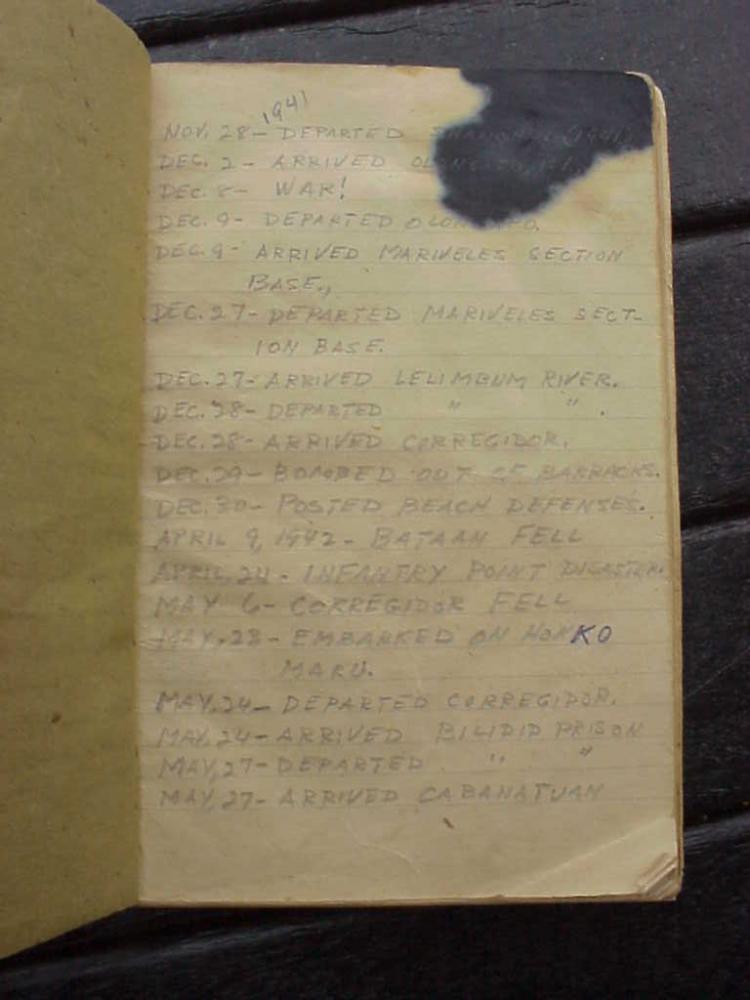 1941
NOV. 28- DEPARTED SHANGHAI (1941)
DEC. 2- ARRIVED OLONGAPO,
DEC. 8- WAR!
DEC. 9- DEPARTED OLONGAPO.
DEC. 9- ARRIVED MARIVELES SECTION
BASE.,
DEC. 27- DEPARTED MARIVELES SECT-
ION BASE.
DEC. 27- ARRIVED LELIMBUM RIVER.
DEC. 28- DEPARTED " " .
DEC. 28- ARRIVED CORREGIDOR.
DEC. 29- BOMBED OUT OF BARRACKS.
DEC. 30- POSTED BEACH DEFENSES.
APRIL 9, 1942- BATAAN FELL
APRIL, 24- INFANTRY POINT DISASTER.
MAY 6- CORREGIDOR FELL
MAY, 23- EMBARKED ON HOKKO
MARU.
MAY, 24- DEPARTED CORREGIDOR.
MAY, 24- ARRIVED BILIDID PRISON
MAY, 27- DEPARTED " "
MAY, 27- ARRIVED CABANATUAN